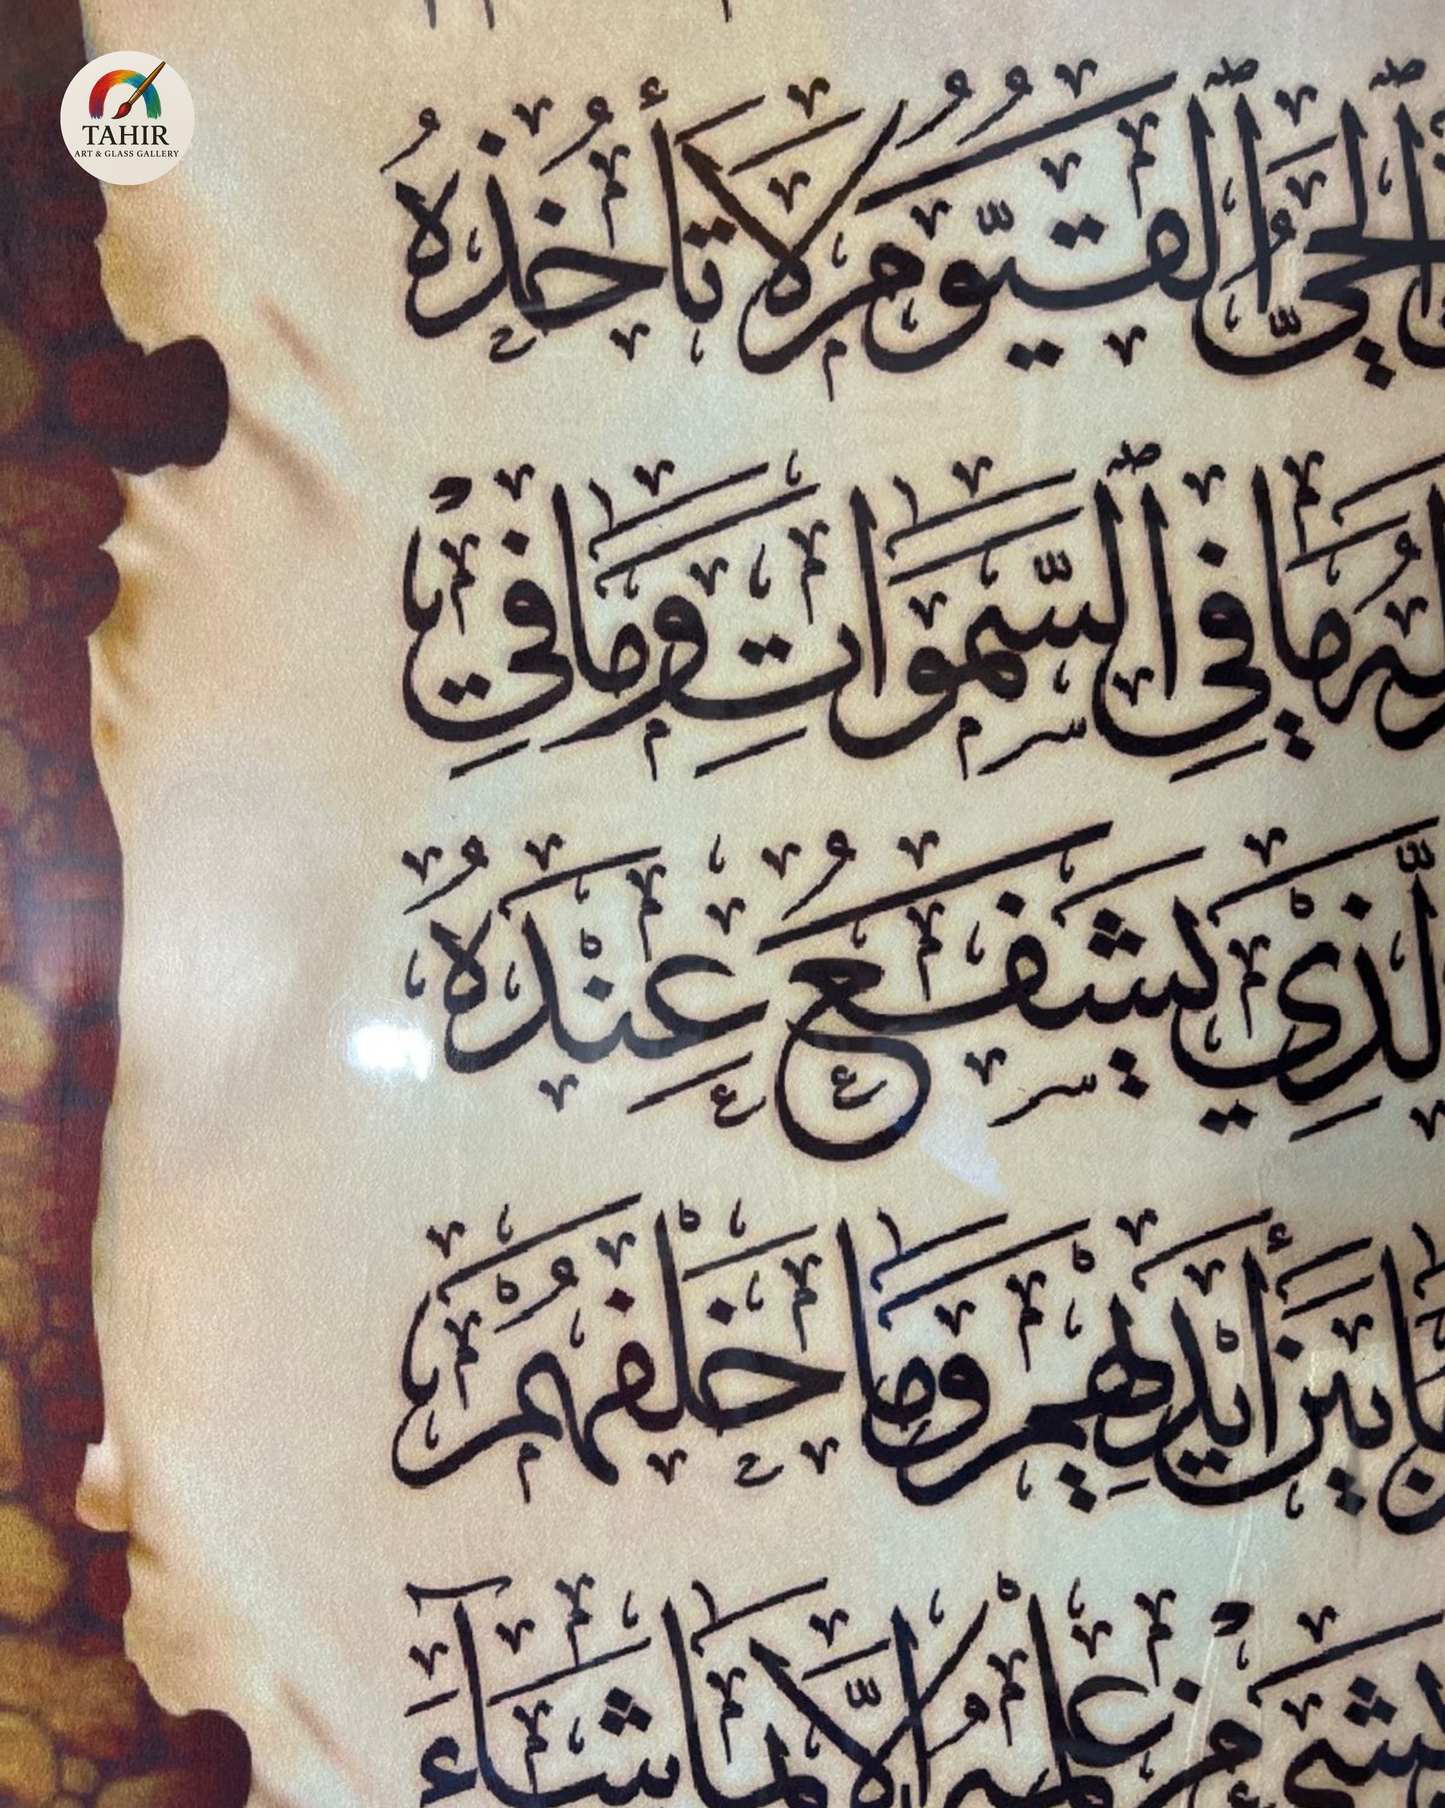 TAHIR
ART & GLASS GALLERY
ٱلْحَيُّ ٱلْقَيُّومُ لَا تَأْخُذُهُ
لَهُ مَا فِي ٱلسَّمَوَاتِ وَمَا فِي
ٱلَّذِي يَشْفَعُ عِنْدَهُ
مَا بَيْنَ أَيْدِيهِمْ وَمَا خَلْفَهُمْ
بِشَيْءٍ مِنْ عِلْمِهِ إِلَّا بِمَا شَاءَ